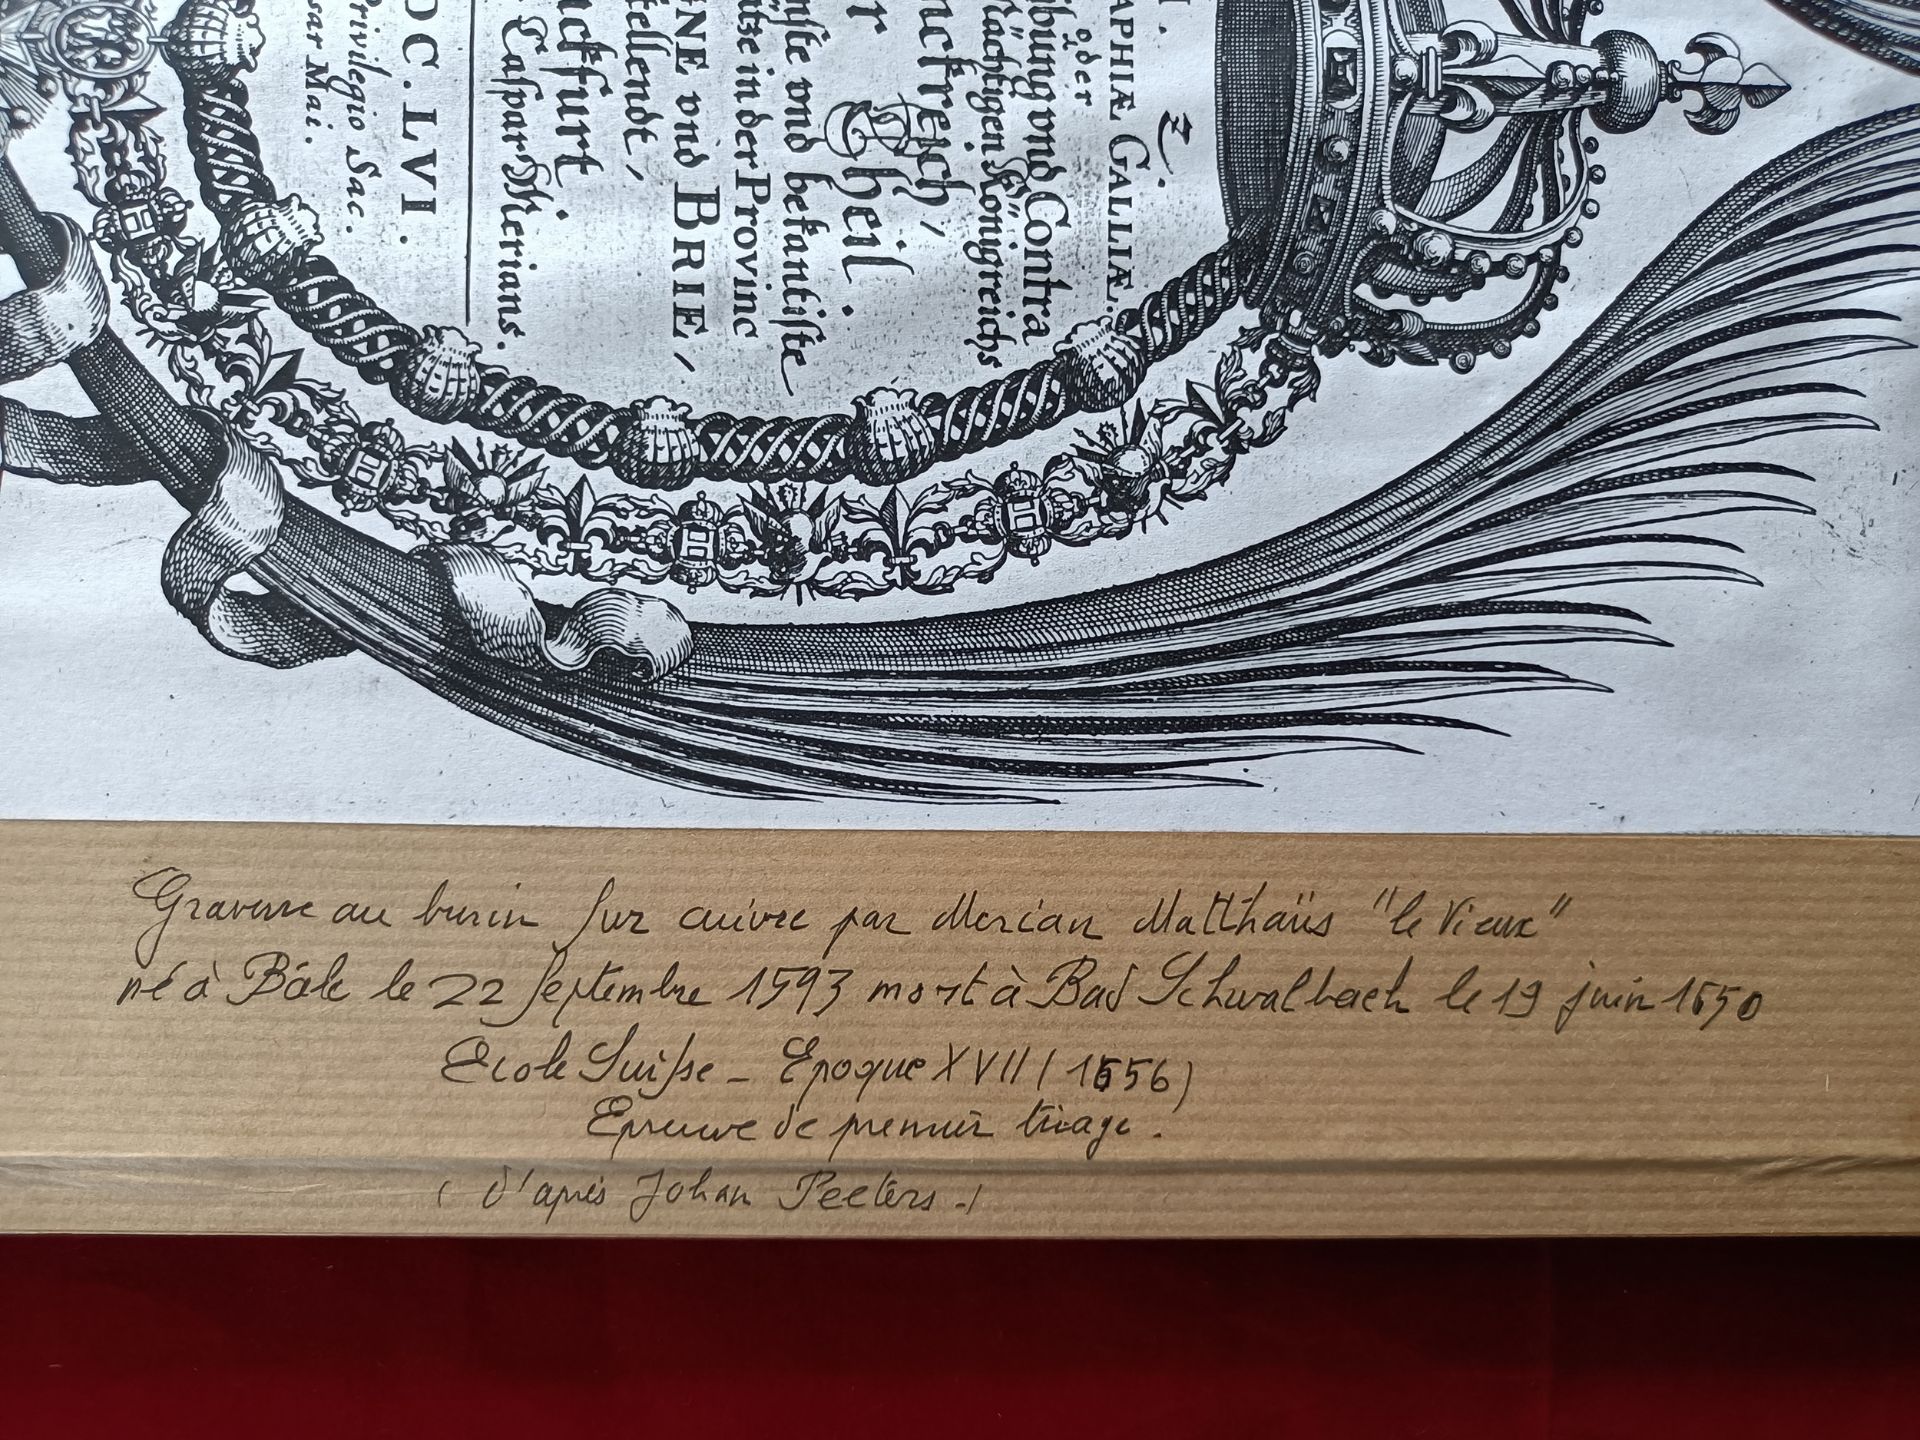 APHIÆ GALLIÆ,
oder
ibung vnd Contra
ächtigen Königreichs
nckreich,
r Theil.
nste vnd bekantiste
tze in der Provinc
NE vnd BRIE,
tellendt,
nckfurt
Caspar Merians.
DC.LVI.
Privilegio Sac.
sar Mai.
Gravure au burin sur cuivre par Merian Matthaüs "le Vieux"
né à Bâle le 22 Septembre 1593 mort à Bad Schwalbach le 19 juin 1650
Ecole Suisse - Epoque XVII (1656)
Epreuve de premier tirage.
(d'après Johan Peeters.)